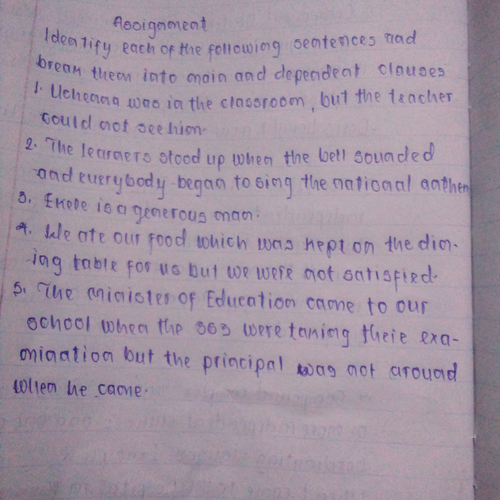 Assignment
Identify each of the following sentences and
break them into main and dependent clauses
1. Uchenna was in the classroom, but the teacher
could not see him.
2. The learners stood up when the bell sounded
and everybody began to sing the national anthem
3. Enere is a generous man.
4. We ate our food which was kept on the din-
-ing table for us but we were not satisfied.
5. The minister of Education came to our
school when the SS3 were taking their exa-
mination but the principal was not around
when he came.